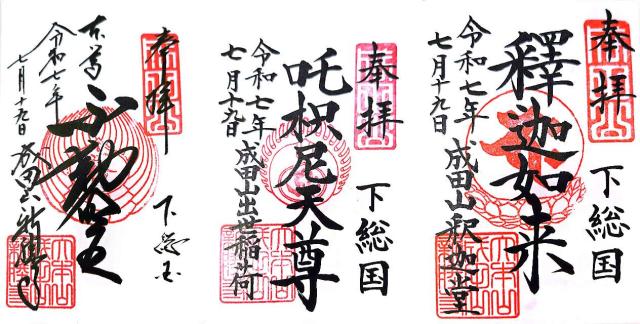 奉拝
下総国
釋迦如来
令和七年
七月十九日
成田山釈迦堂
奉拝
下総国
吒枳尼天尊
令和七年
七月十九日
成田山出世稲荷
奉拝
下総国
本尊
不動明王
令和七年
七月十九日
成田山新勝寺